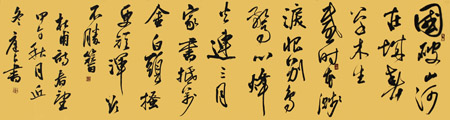 國破山河
在城春
草木生
感時花濺
淚恨別鳥
驚心烽
火連三月
家書抵萬
金白頭搔
更短渾欲
不勝簪
杜甫詩春望
甲午秋月丘
冬書